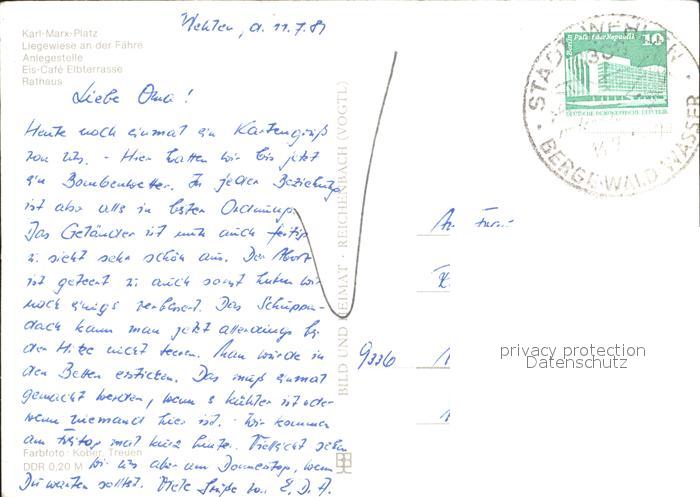 Karl-Marx-Platz
Liegewiese an der Fähre
Anlegestelle
Eis-Café Elbterrasse
Rathaus
Wehlen, d. 11.7.81
Liebe Oma!
Heute noch einmal ein Kartengruß
von uns. - Hier hatten wir bis jetzt
ein Bombenwetter. In jeder Beziehung
ist aber alles in bester Ordnung.
Das Geländer ist nun auch fertig
u. sieht sehr schön aus. Der Abort
ist geteert u. auch sonst haben wir
noch einiges verbessert. Das Schuppen-
dach kann man jetzt allerdings bei
der Hitze nicht teeren. Man würde in
den Betten ersticken. Das muß einmal
gemacht werden, wenn es kühler ist oder
wenn niemand hier ist. Wir kommen
am Freitag mal kurz heute. Vielleicht sehen
wir uns aber am Donnerstag, wenn
Du warten solltest. Viele Grüße von E. D. A.
Farbfoto: Kober, Treuen
DDR 0,20 M
BILD UND HEIMAT · REICHENBACH (VOGTL)
Berlin Palast der Republik
10
DEUTSCHE DEMOKRATISCHE REPUBLIK
STADT WEHLEN
BERGE WALD WASSER
An
9336
privacy protection
Datenschutz